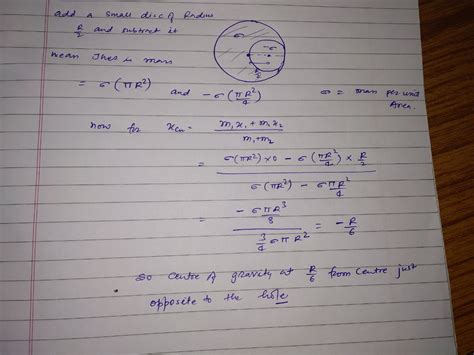 add a small disc of Radius
R/2 and subtract it
mean Their is mass
= σ(πR²) and -σ(πR²/4) σ = mass per unit
Area.
σ
-σ
R/2
now for xcm = m₁x₁ + m₂x₂ / m₁+m₂
= σ(πR²)×0 - σ(πR²/4) × R/2 / σ(πR²) - σπR²/4
= -σπR³/8 / 3/4 σπR² = -R/6
So Centre of gravity at R/6 from Centre just
opposite to the hole